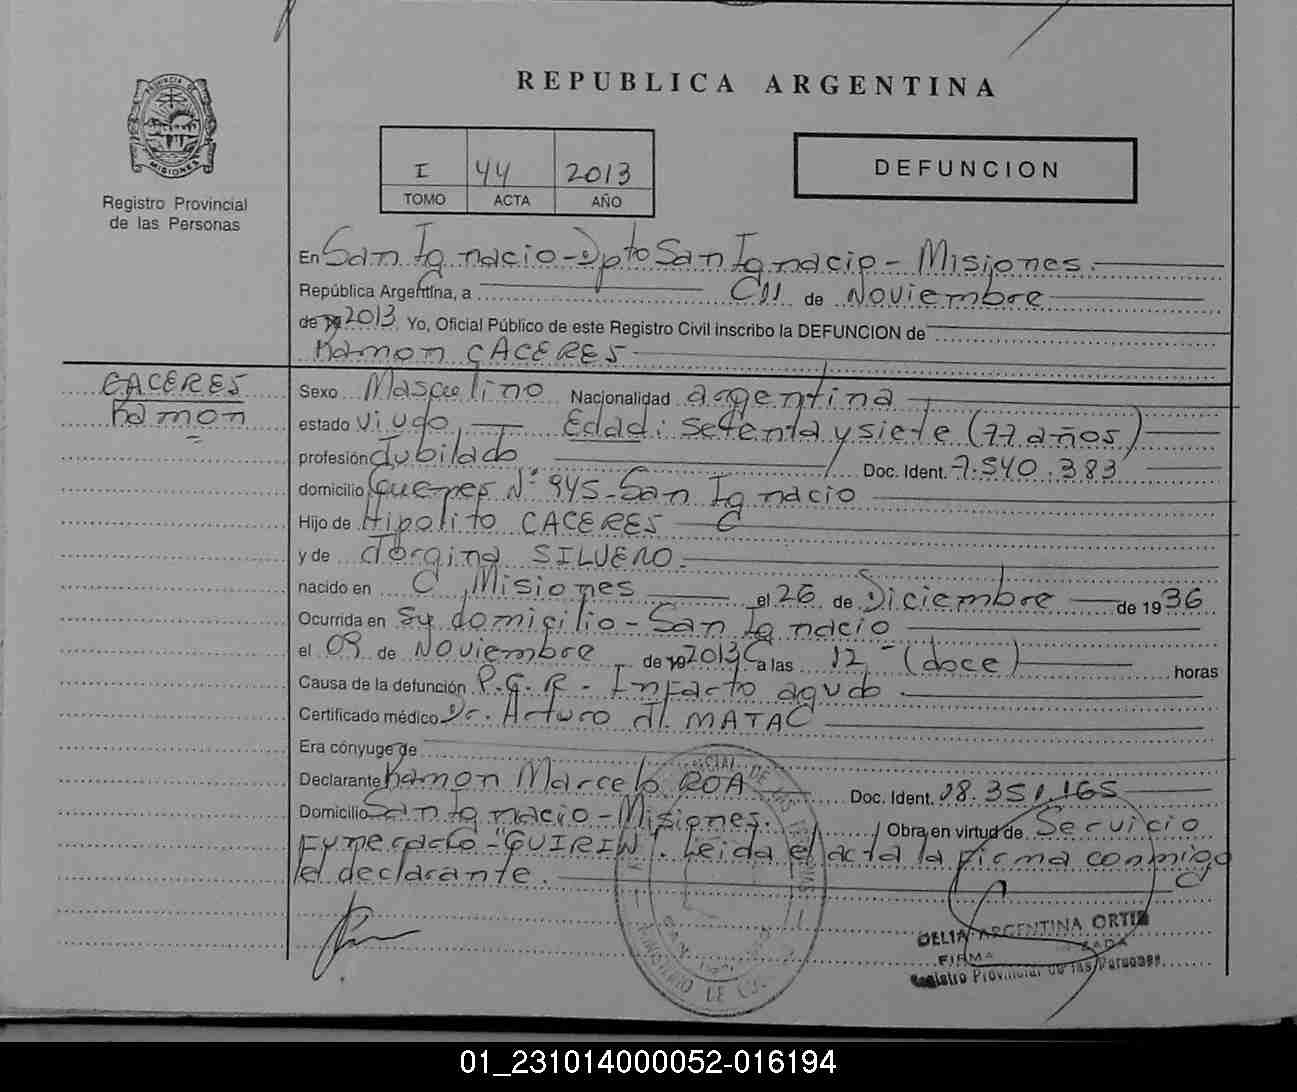 REPUBLICA ARGENTINA
PROVINCIA DE
MISIONES
Registro Provincial
de las Personas
I 44 2013
TOMO ACTA AÑO
DEFUNCION
En San Ignacio - Dpto San Ignacio - Misiones.
República Argentina, a 11 de Noviembre
de 19 2013. Yo, Oficial Público de este Registro Civil inscribo la DEFUNCION de
Ramon CACERES
CACERES
Ramon
Sexo Masculino Nacionalidad argentina
estado viudo Edad: Setenta y siete (77 años)
profesión Jubilado Doc. Ident. 7.540.383
domicilio Guemes N° 945 - San Ignacio
Hijo de Hipolito CACERES
y de Jorgina SILVERO.
nacido en Misiones el 26 de Diciembre de 1936
Ocurrida en su domicilio - San Ignacio
el 09 de Noviembre de 19 2013 a las 12 (doce) horas
Causa de la defunción P.C.R. - Infarto agudo.
Certificado médico Dr. Arturo
Era cónyuge de
Declarante Ramon Marcelo ROA Doc. Ident. 28.351.165
Domicilio San Ignacio - Misiones. Obra en virtud de Servicio
Funerario - "GUIRIN". Leida el acta la firma conmigo
el declarante.
DELIA ARGENTINA ORTIZ
FIRMA
Registro Provincial de las Personas
01_231014000052-016194